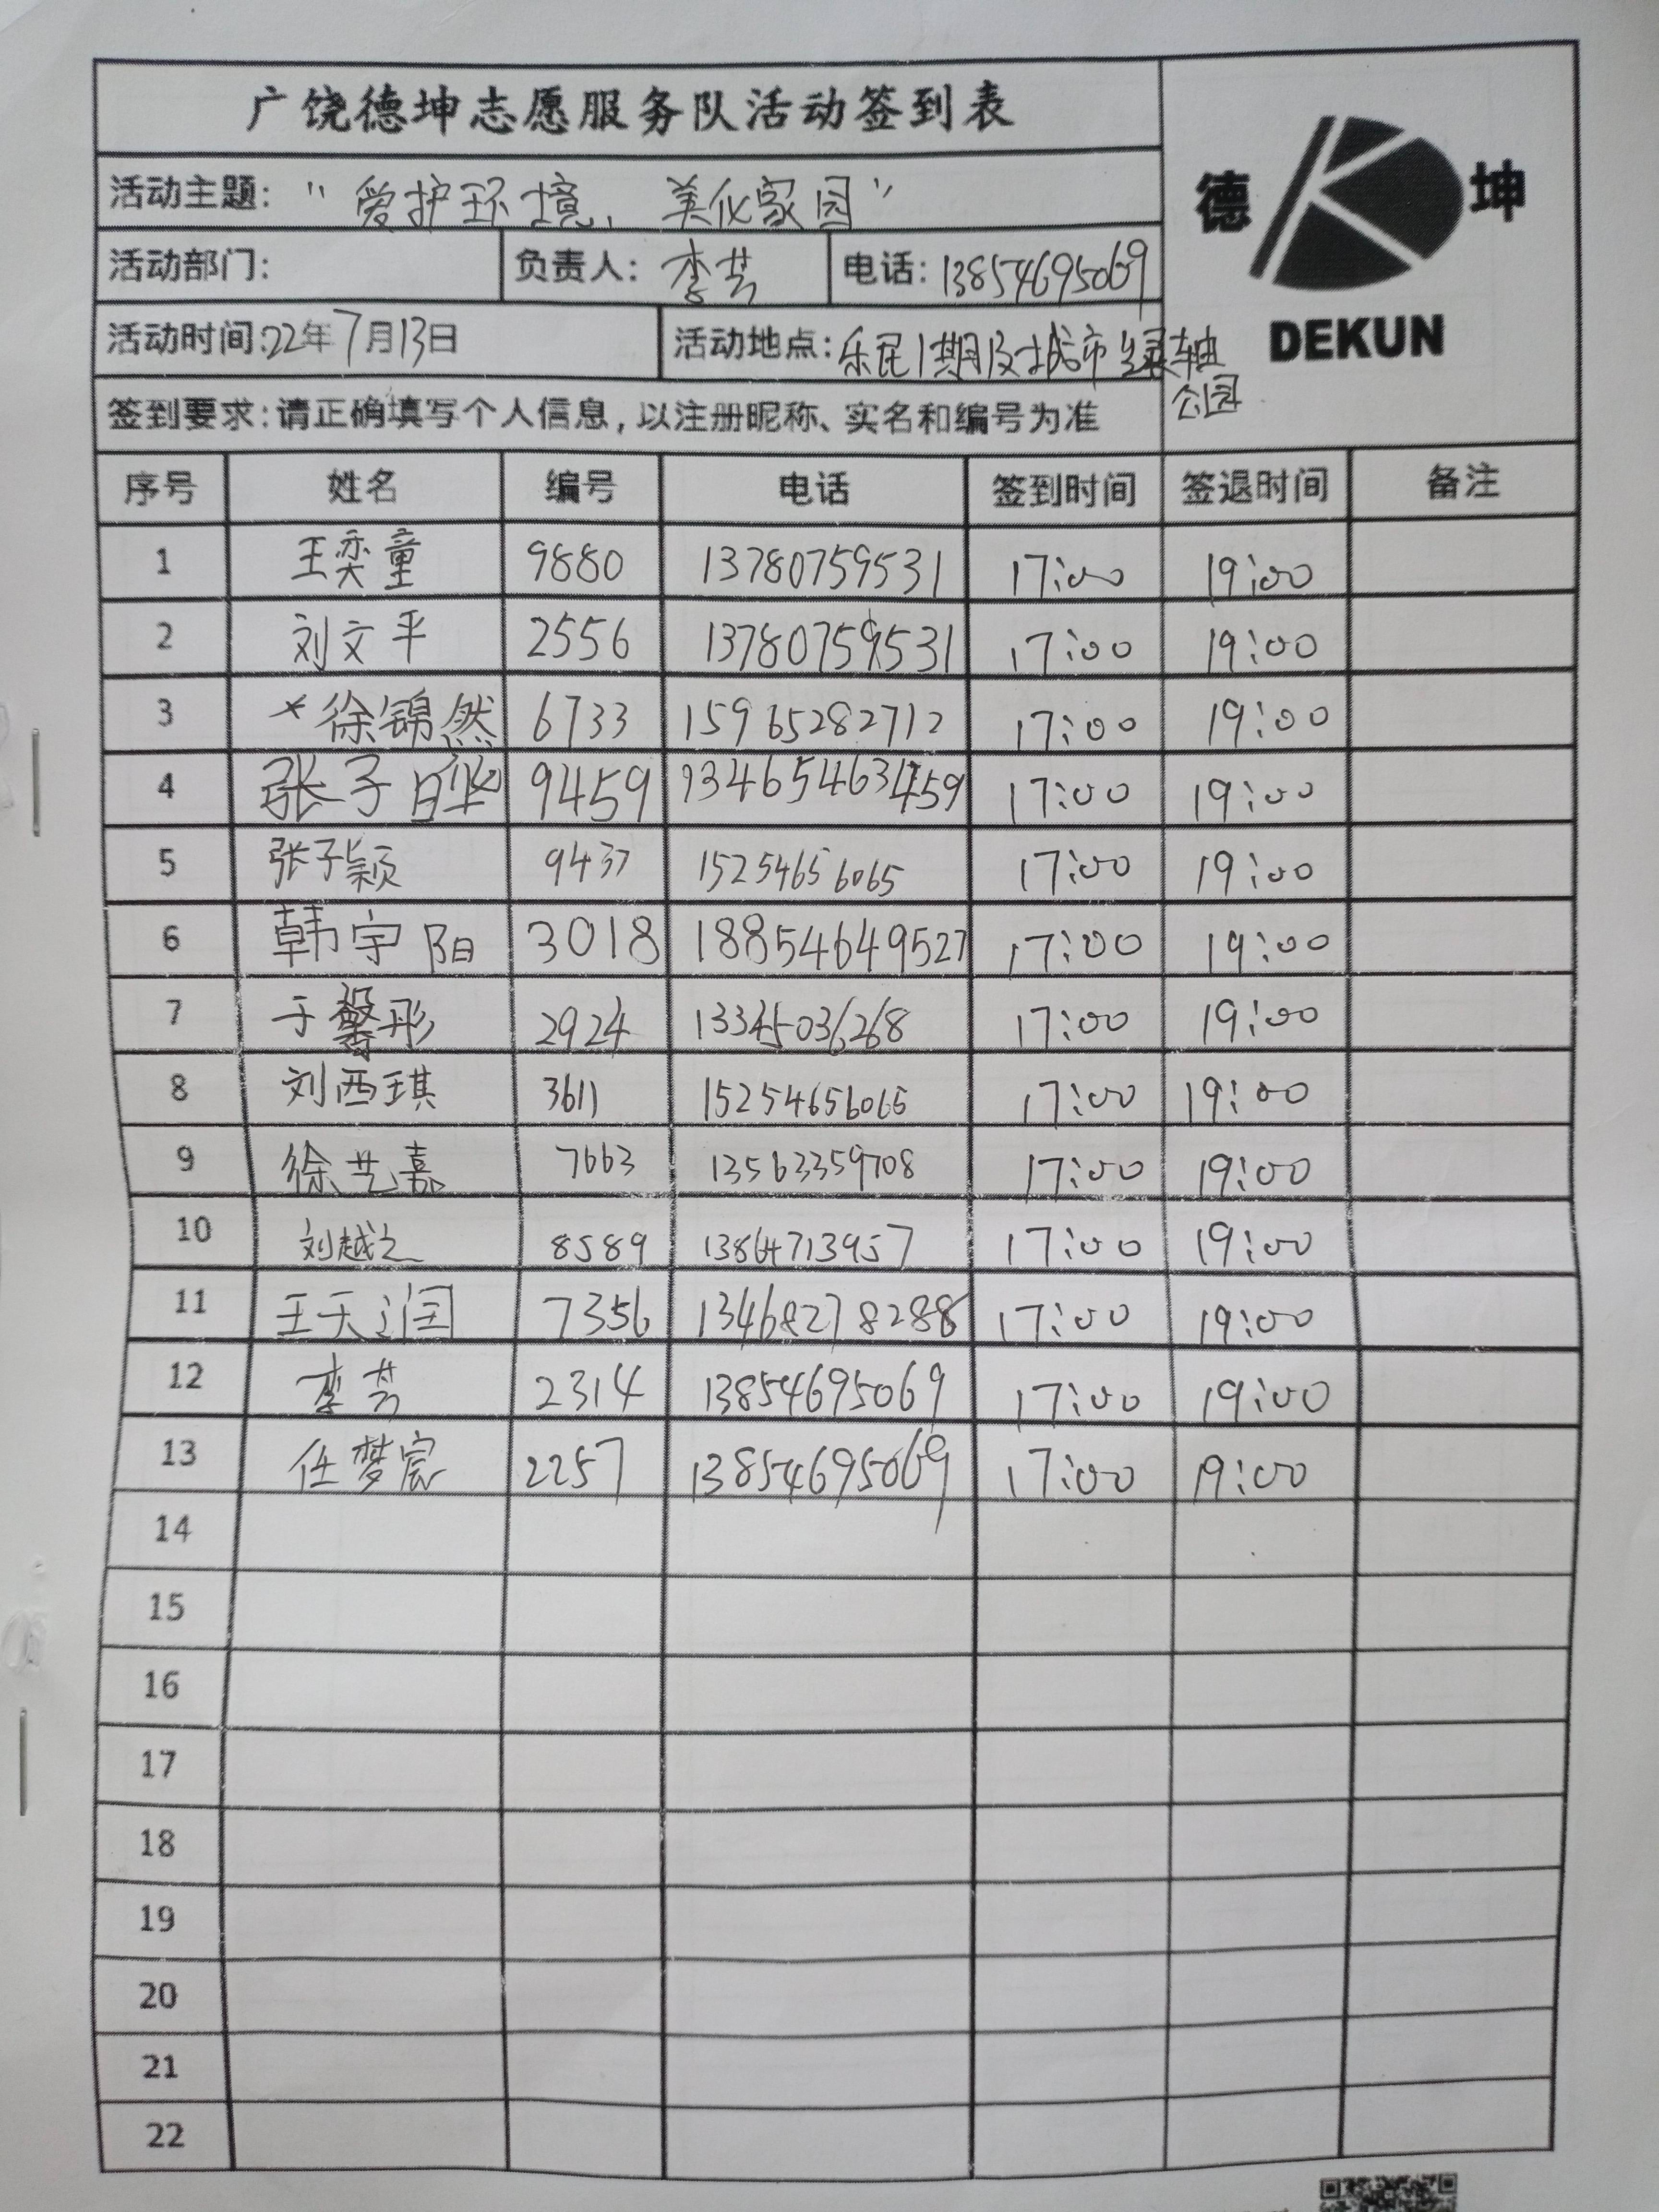 广饶德坤志愿服务队活动签到表
德 坤
DEKUN
活动主题: "爱护环境,美化家园"
活动部门: 负责人: 李芸 电话: 13854695069
活动时间:22年7月13日 活动地点: 乐民1期及城市绿轴
公园
签到要求:请正确填写个人信息,以注册昵称、实名和编号为准
序号 姓名 编号 电话 签到时间 签退时间 备注
1 王奕童 9880 13780759531 17:00 19:00
2 刘文平 2556 13780759531 17:00 19:00
3 *徐锦然 6733 15965282712 17:00 19:00
4 张子晔 9459 17:00 19:00
5 张子颖 9437 15254656065 17:00 19:00
6 韩宇阳 3018 18854649527 17:00 19:00
7 于馨彤 2924 17:00 19:00
8 刘西琪 3611 15254656065 17:00 19:00
9 徐艺嘉 7663 13563359708 17:00 19:00
10 刘越之 8589 13864713957 17:00 19:00
11 王天润 7356 13468278288 17:00 19:00
12 李芸 2314 13854695069 17:00 19:00
13 任梦宸 2257 13854695069 17:00 19:00
14
15
16
17
18
19
20
21
22